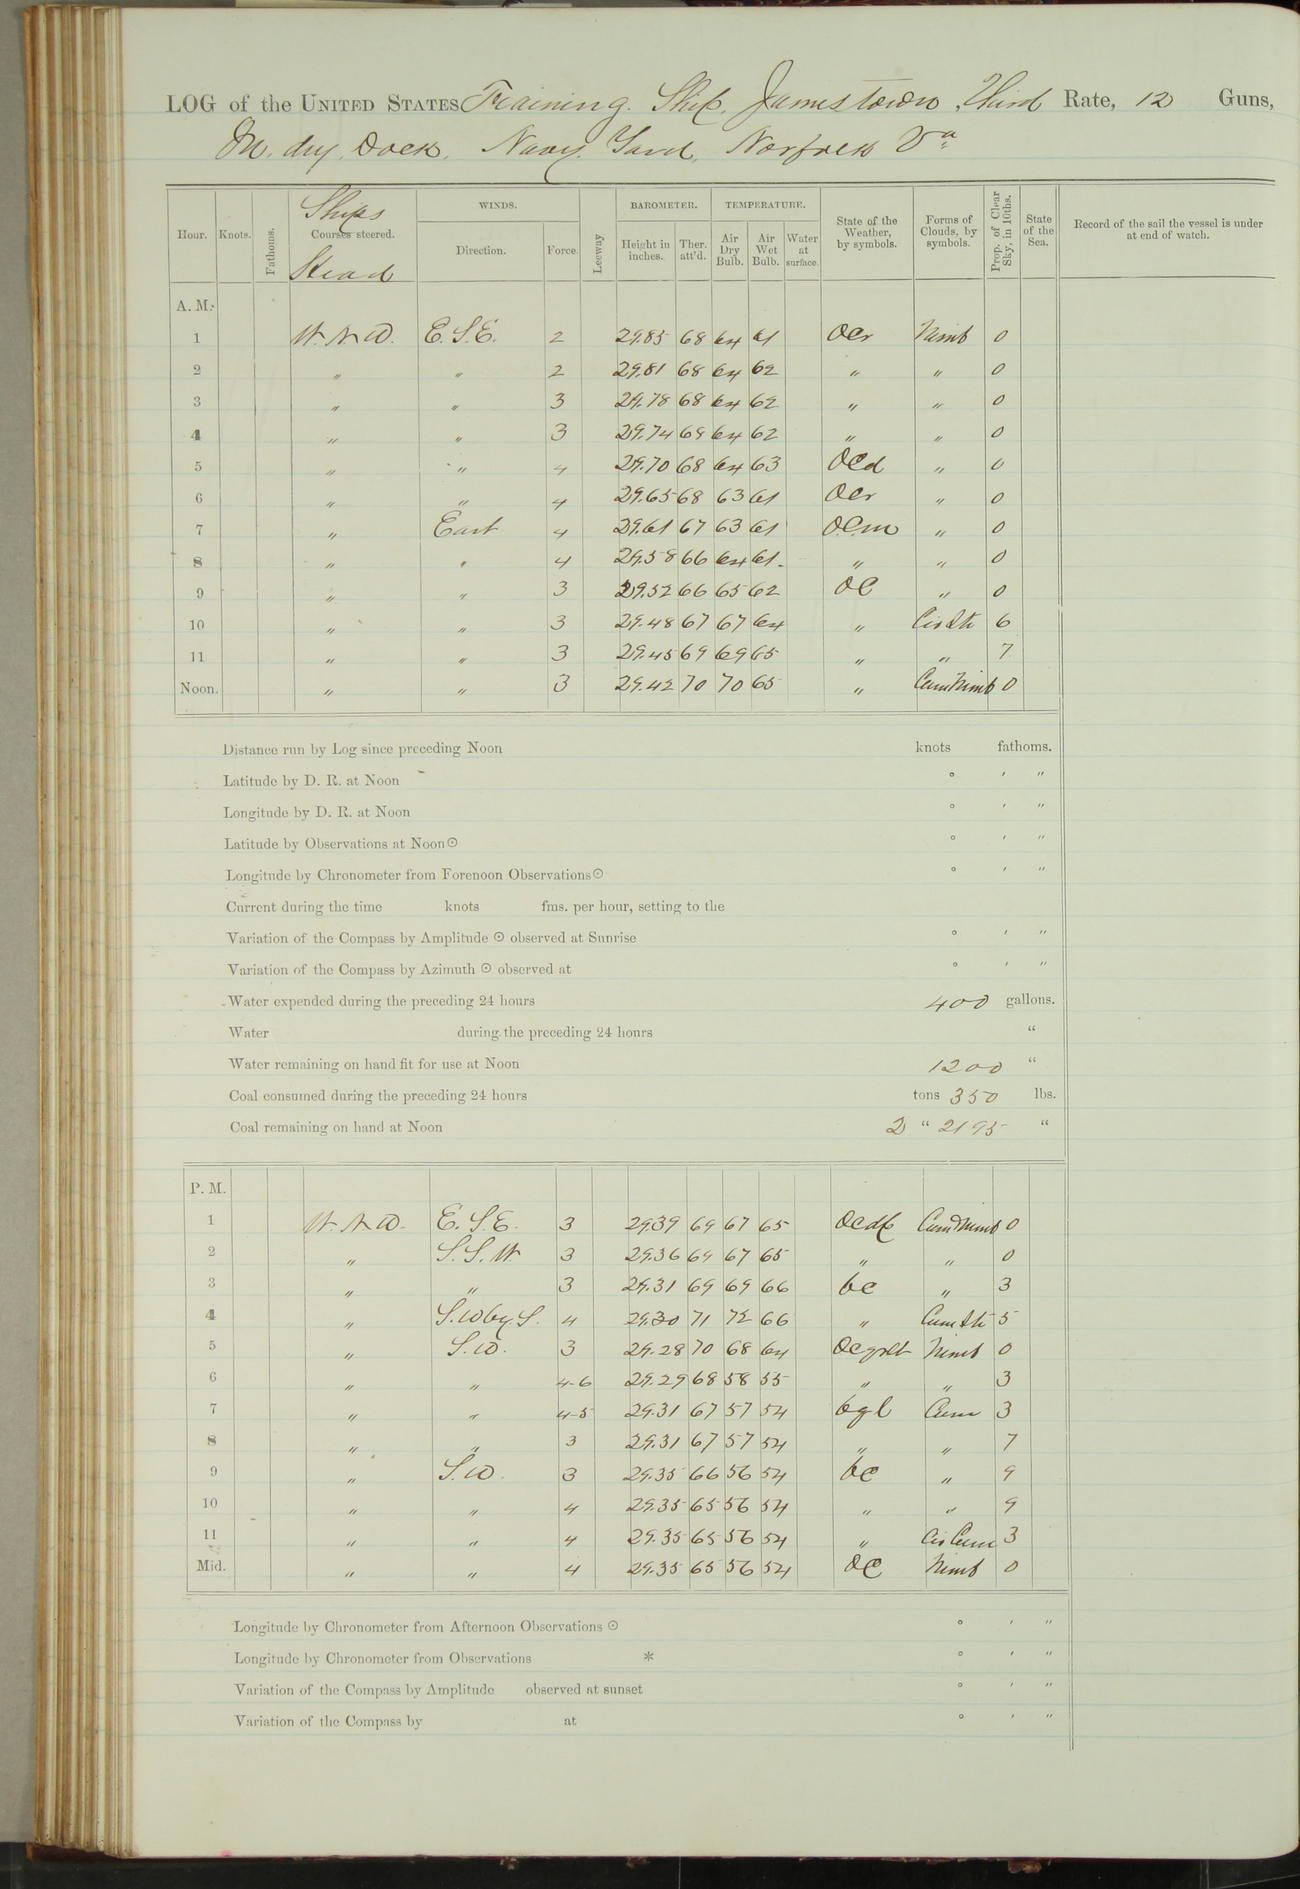 LOG of the UNITED STATES Training Ship Jamestown, Third Rate, 12 Guns,
In dry Dock, Navy Yard, Norfolk Va
Hour. Knots. Fathoms. Ships Courses steered. Head WINDS. Direction. Force. Leeway BAROMETER. Height in inches. Ther. att'd. TEMPERATURE. Air Dry Bulb. Air Wet Bulb. Water at surface. State of the Weather, by symbols. Forms of Clouds, by symbols. Prop. of Clear Sky, in 10ths. State of the Sea. Record of the sail the vessel is under at end of watch.
A. M.
1 W.N.W. E.S.E. 2 29.85 68 64 61 ocr Nimb 0
2 " " 2 29.81 68 64 62 " " 0
3 " " 3 29.78 68 64 62 " " 0
4 " " 3 29.74 68 64 62 " " 0
5 " " 4 29.70 68 64 63 ocd " 0
6 " " 4 29.65 68 63 61 ocr " 0
7 " East 4 29.61 67 63 61 ocm " 0
8 " " 4 29.58 66 64 61 " " 0
9 " " 3 29.52 66 65 62 oc " 0
10 " " 3 29.48 67 67 64 " Cir Str 6
11 " " 3 29.45 69 69 65 " " 7
Noon. " " 3 29.42 70 70 65 " Cum Nimb 0
Distance run by Log since preceding Noon knots fathoms.
Latitude by D. R. at Noon ° ′ ″
Longitude by D. R. at Noon ° ′ ″
Latitude by Observations at Noon ☉ ° ′ ″
Longitude by Chronometer from Forenoon Observations ☉ ° ′ ″
Current during the time knots fms. per hour, setting to the
Variation of the Compass by Amplitude ☉ observed at Sunrise ° ′ ″
Variation of the Compass by Azimuth ☉ observed at ° ′ ″
Water expended during the preceding 24 hours 400 gallons.
Water during the preceding 24 hours "
Water remaining on hand fit for use at Noon 1200 "
Coal consumed during the preceding 24 hours tons 350 lbs.
Coal remaining on hand at Noon 2 " 2195 "
P. M.
1 W.N.W. E.S.E. 3 29.39 69 67 65 Cum Nimb 0
2 " S.S.W. 3 29.36 69 67 65 " " 0
3 " " 3 29.31 69 69 66 bc " 3
4 " S.W by S. 4 29.30 71 72 66 " Cum Str 5
5 " S.W. 3 29.28 70 68 64 Nimb 0
6 " " 4-6 29.29 68 58 55 " " 3
7 " " 4-5 29.31 67 57 54 bql Cum 3
8 " " 3 29.31 67 57 54 " " 7
9 " S.W. 3 29.35 66 56 54 bc " 9
10 " " 4 29.35 65 56 54 " " 9
11 " " 4 29.35 65 56 54 " Cir Cum 3
Mid. " " 4 29.35 65 56 54 oc Nimb 0
Longitude by Chronometer from Afternoon Observations ☉ ° ′ ″
Longitude by Chronometer from Observations * ° ′ ″
Variation of the Compass by Amplitude observed at sunset ° ′ ″
Variation of the Compass by at ° ′ ″